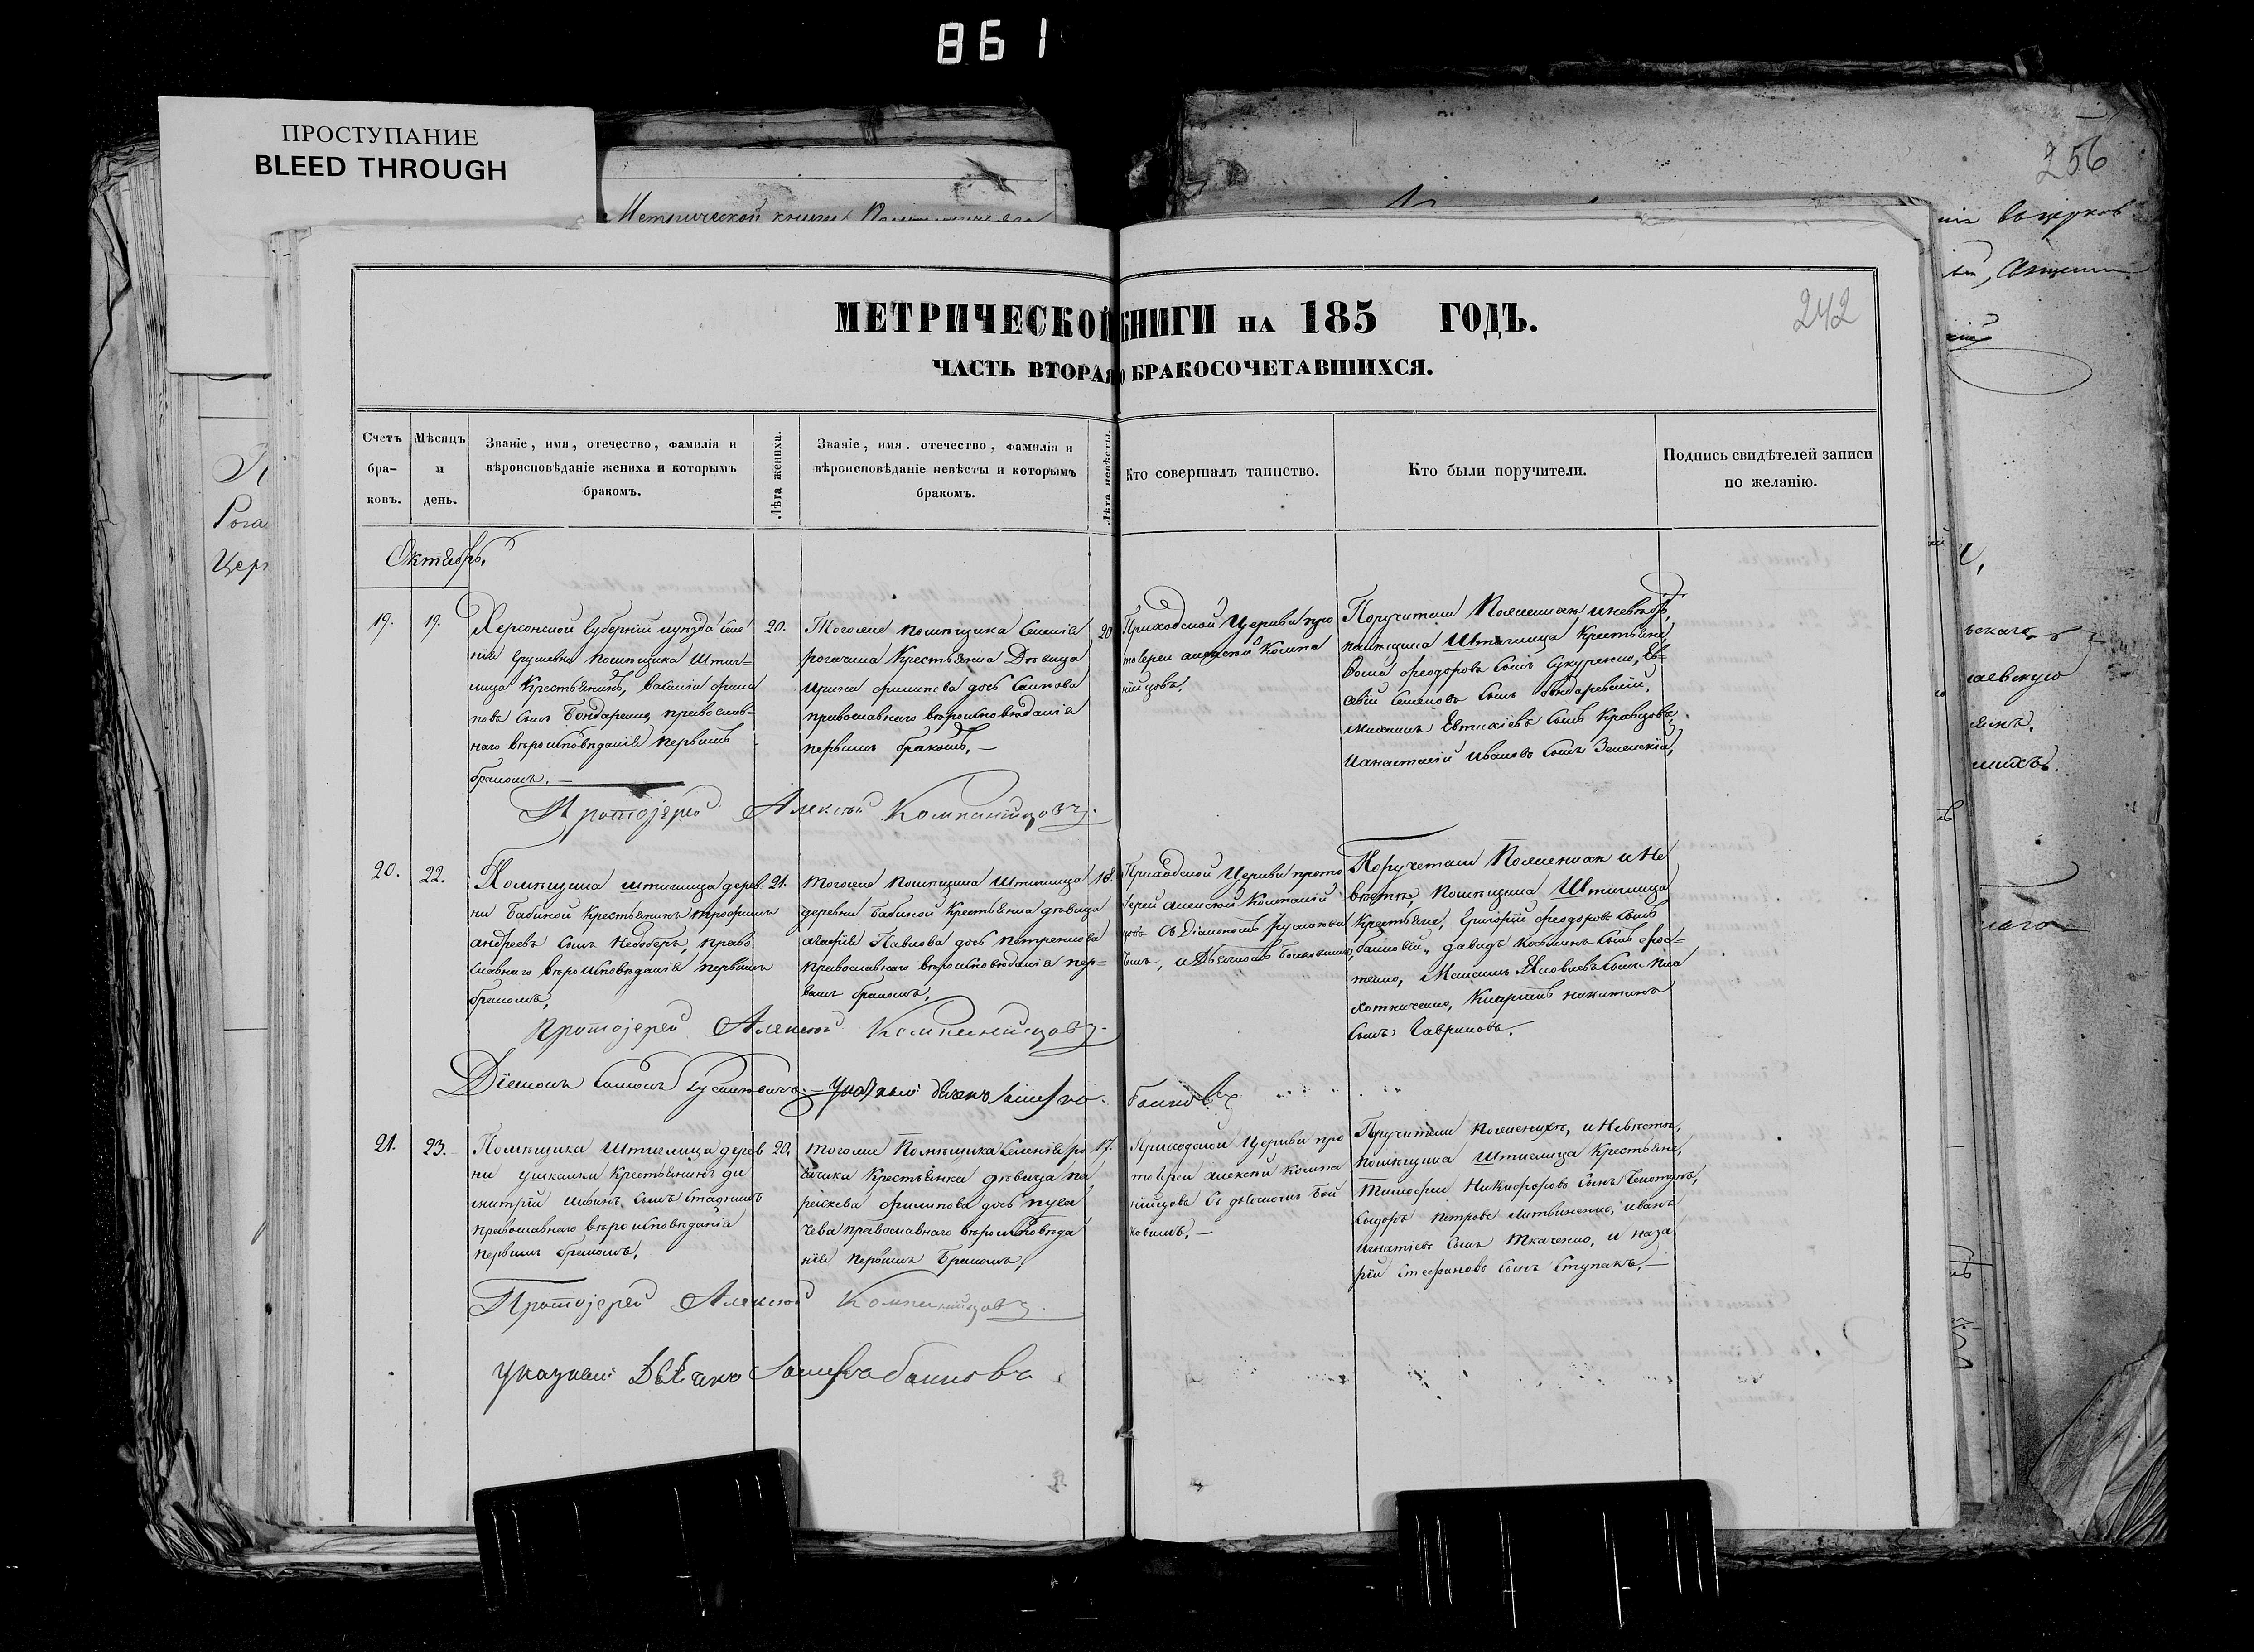 861
ПРОСТУПАНИЕ
BLEED THROUGH
256
Метрической книги
242
МЕТРИЧЕСКОЙ КНИГИ НА 185 ГОДЪ.
ЧАСТЬ ВТОРАЯ О БРАКОСОЧЕТАВШИХСЯ.
Счетъ бра- ковъ.
Мѣсяцъ и день.
Званіе, имя, отечество, фамилія и вѣроисповѣданіе жениха и которымъ бракомъ.
Лѣта жениха.
Званіе, имя, отечество, фамилія и вѣроисповѣданіе невѣсты и которымъ бракомъ.
Лѣта невѣсты.
Кто совершалъ таинство.
Кто были поручители.
Подпись свидѣтелей записи по желанію.
Октябрь.
19.
19.
Херсонской Губерніи уѣзда Селе
нія Грушевки помѣщика Штиг=
лица Крестьянинъ, Василій Фили
повъ сынъ Бондаренко, православ=
наго вѣроисповѣданія первымъ
бракомъ.
20.
Тогоже помѣщика Селенія
рогачика Крестьянка Дѣвица
Ирина Филипова дочь
православнаго вѣроисповѣданія
первымъ бракомъ.
20
Приходской Церкви про
тоіерей Алексѣй Компа
нійцовъ.
Поручители По женихѣ и невѣстѣ,
помѣщика Штиглица Крестьяне,
Фома Феодоровъ сынъ Сукуренко, Ев=
сѣй Семеновъ сынъ Бондаревскій,
Михаилъ Евтихіевъ сынъ Кравцовъ,
и Анастасій Ивановъ сынъ Зеленскій,
Протоіерей Алексѣй Компанійцовъ.
20.
22.
Помѣщика Штиглица дерев
ни Бабиной Крестьянинъ Трофимъ
Андреевъ сынъ Недоберъ, право
славнаго вѣроисповѣданія первымъ
бракомъ,
21.
Тогоже помѣщика Штиглица
деревни Бабиной Крестьянка дѣвица
Агафія Павлова дочь Петренкова
православнаго вѣроисповѣданія пер=
вымъ бракомъ,
18.
Приходской Церкви прото
іерей Алексѣй Компаній
цовъ Съ Діакономъ
и Дьячкомъ Боиковымъ,
Поручители По женихѣ и Не
вѣстѣ, помѣщика Штиглица
Крестьяне, Григорій Феодоровъ сынъ
Давидъ Козьминъ сынъ
Максимъ Яковлевъ сынъ Пла
хотниченко, Кипріянъ Никитинъ
сынъ Гавриловъ.
Протоіерей Алексѣй Компанійцовъ.
Діаконъ
Указный Дьячекъ
Боиковъ
21.
23.
Помѣщика Штиглица дерев
ни Ушкалки Крестьянинъ Ди
митрій сынъ Стадникъ
православнаго вѣроисповѣданія
первымъ бракомъ,
20,
тогоже Помѣщика Селенія ро
гачика Крестьянка дѣвица па
раскева Филипова дочь Пуга
чева православнаго вѣроисповѣда
нія первымъ бракомъ,
17.
Приходской Церкви про
тоіерей Алексѣй Компа
нійцовъ Съ дьячкомъ Бой
ковымъ,
Поручители По женихѣ, и Невѣстѣ,
помѣщика Штиглица Крестьяне,
Тимофей Никифоровъ сынъ
Сидоръ Петровъ Литвиненко, Иванъ
Игнатіевъ сынъ Ткаченко, и Наза
рій Стефановъ сынъ Ступакъ,
Протоіерей Алексѣй Компанійцовъ.
Указный Дьячекъ Боиковъ